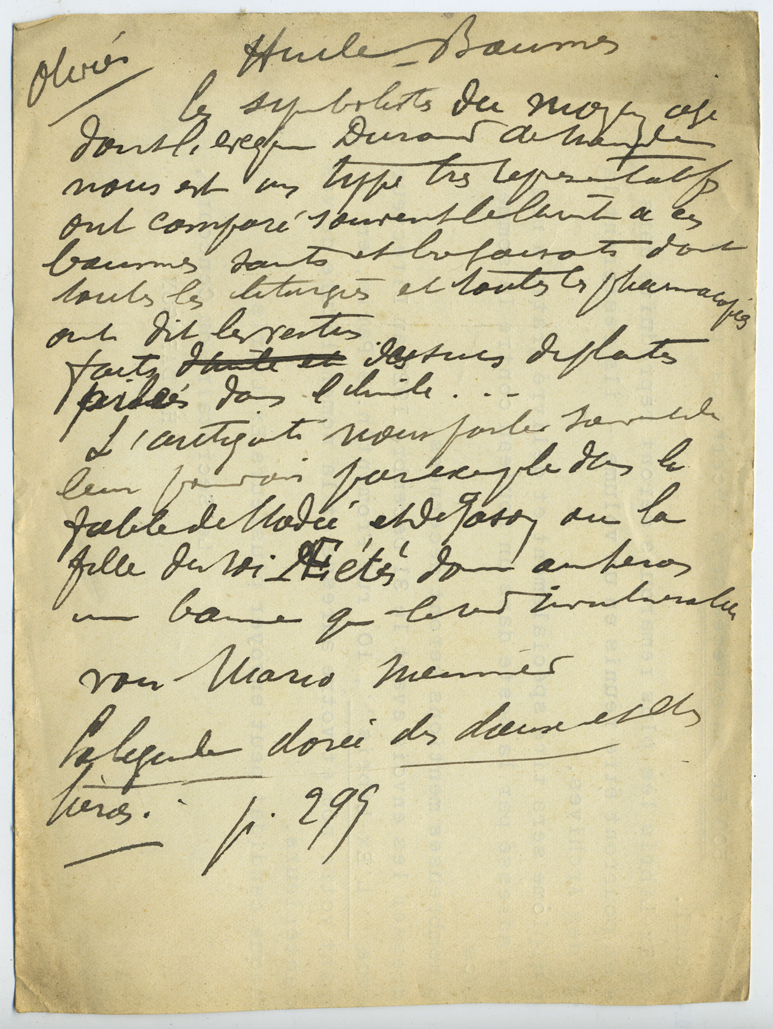 Olivies Huile - Baumes
les symbolistes du moyen age
dont l'evêque Durand de
nous est un type tres representatif
ont comparé souvent le Christ a ces
baumes saints et bienfaisants dont
toutes les liturgies et toutes les pharmacopées
ont dit les vertus
faits d'huile et des sucs de plantes
dans l'huile . . .
L'antiquité nous parle souvent de
leur pouvoir par exemple dans la
fable de Médée et de Jason ou la
fille du roi Æétés donne au heros
un baume qui le rend invulnerable
voir Mario Meunier
La legende dorée des dieux et des
héros. p. 299